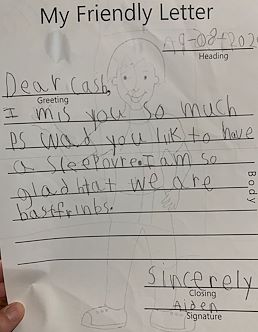 My Friendly Letter
Heading
Dear Cash,
Greeting
I mis you so much
PS wad you lik to have
a sleepovre. I am so
glad htat we are
bastfrinbs.
Body
Sincerely
Closing
Aiden
Signature